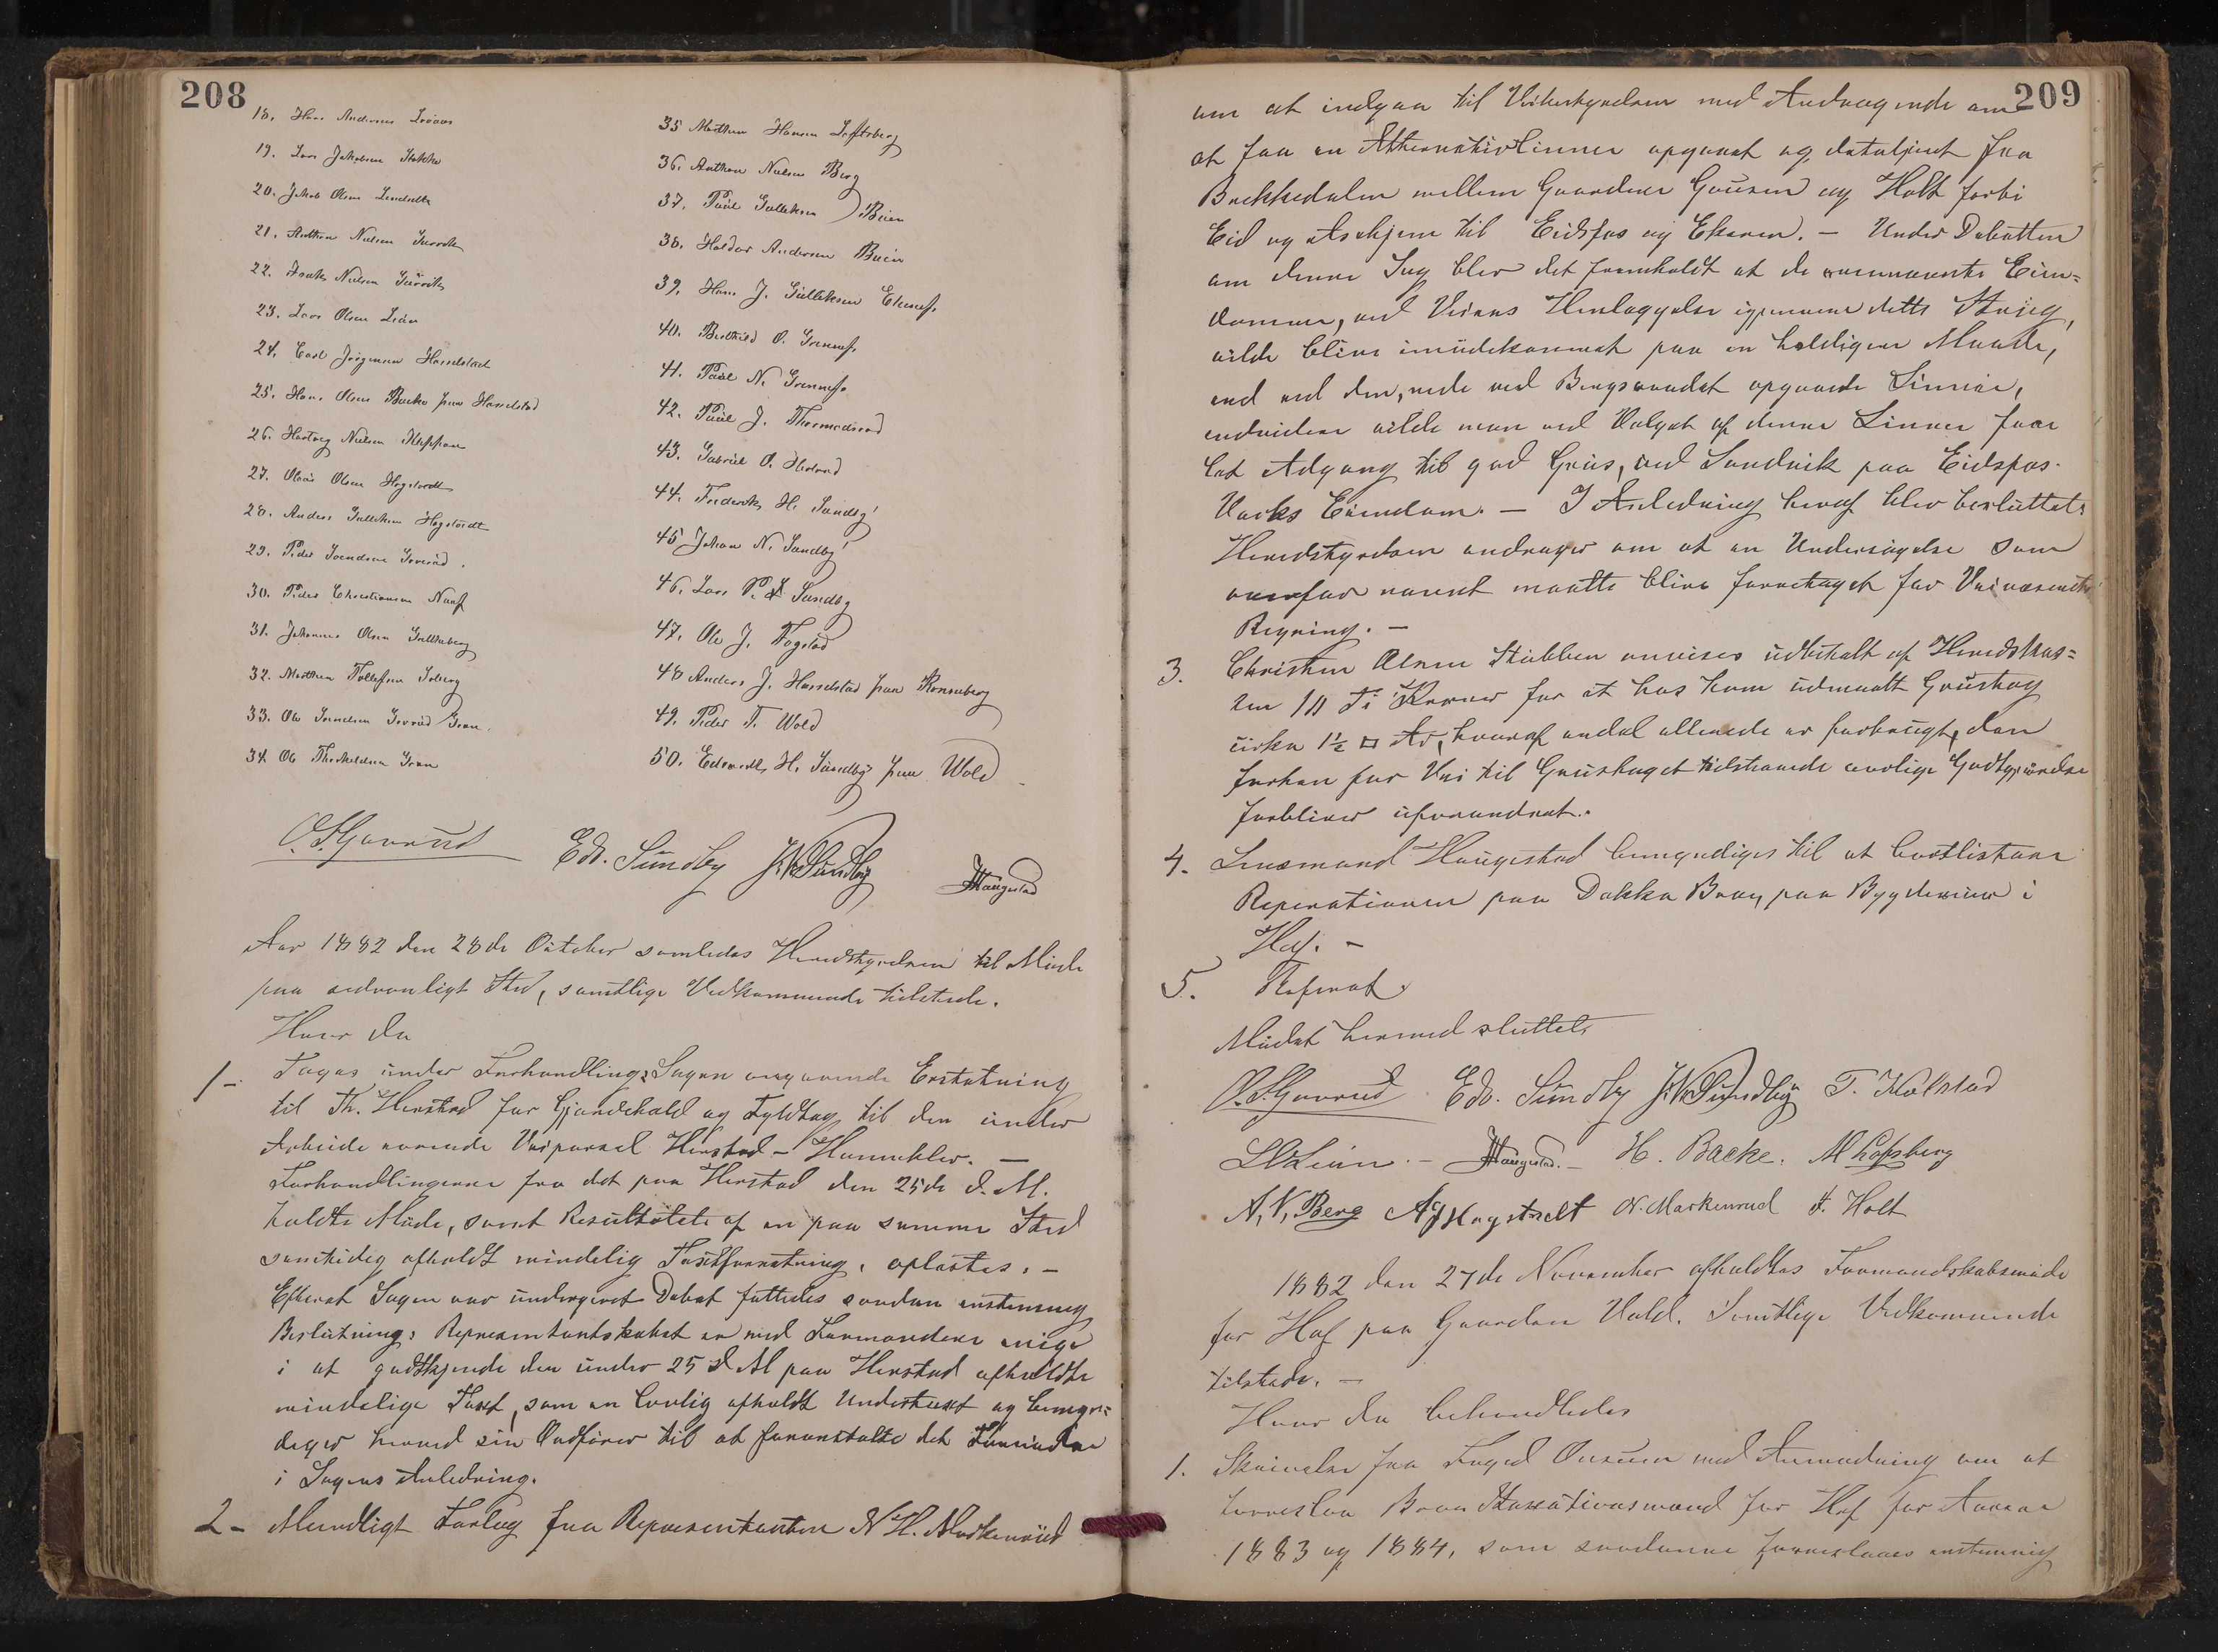 208
18. Hans Andersen Loraas
19. Lars Jakobsen Stokke
20. Jakob Olsen
21. Anthon Nielsen
22. Isak Nielsen
23. Lars Olsen Lian
24. Carl Jørgensen Hasselstad
25. Hans Olsen Backe paa Hasselstad
26. Hartvig Nielsen Kleppan
27. Olaus Olsen Hogstvedt
28. Anders Gulliksen Hogstvedt
29. Peder Svendsen
30. Peder Christiansen
31. Johannes Olsen
32. Mathias Tollefsen Solberg
33. Ole Svendsen Gran.
34. Ole Thorkeldsen Gran
35 Mathias Hansen
36. Anthon Nielsen Berg
37. Paul Gulliksen Bruen
38. Haldor Andersen Bruen
39. Hans J. Gulliksen Ekenæs.
40. Berthild O. Grennes.
41. Paul N. Grennes.
42. Paul J. Thormodsrød
43. Gabriel O.
44. Frederik H. Sundby
45 Johan N. Sundby
46. Lars P. Sundby
47. Ole J. Fogstad
48 Anders J. Hasselstad paa Ronneberg
49. Peder T. Wold
50. Edvardt H. Sundby paa Wold
O. S. Gavrud Edv. Sundby J. N. Sundby Haugestad
Aar 1882 den 28de Oktober samledes Herredstyrelsen til Møde
paa sedvanligt Sted, samtlige Vedkommende tilstede.
Hvor da
1- Toges under Forhandling: Sagen angaaende Erstatning
til Th. Herstad for Gjærdehold og Fyldtag til den under
Arbeide værende Veiparsel Herstad – Hanneklev. –
Forhandlingerne fra det paa Herstad den 25de d. M.
holdte Møde, samt Resultatet af en paa samme Sted
samtidig afholdt mindelig Taxtforretning, oplæstes. –
Efterat Sagen var undergivet Debat fattedes saadan enstemmig
Beslutning: Repræsentantskabet er med Formændene enige
i at godkjende den under 25 d. M. paa Herstad afholdte
mindelige Taxt, som en lovlig afholdt Undertaxt og bemyn=
diger herved sin Ordfører til at foranstalte det Fornødne
i Sagens Anledning.
2 - Mundligt Forslag fra Repræsentanten N. H. Markenrud
209
om at indgaa til Veibestyrelsen med Andragende om
at faa en Alternativlinie opgaaet og detaljeret fra
Bækkedalen mellem Gaardene Gausen og Holt forbi
Eid og Askjem til Eidsfos og Ekeren. – Under Debatten
om denne Sag blev det fremholdt at de ovennævnte Eien=
domme, ved Veiens Henlæggelse igjennem dette Strøg,
vilde blive imødekommet paa en heldigere Maade,
end ved den, nede ved Bergsvandet opgaaede Linie,
endvidere vilde man ved Valget af denne Linie faa
let Adgang til god Grus, ved Sandvik paa Eidsfos
Værks Eiendom. – I Anledning heraf blev besluttet:
Herredstyrelsen andrager om at en Undersøgelse som
ovenfor nævnt maatte blive foretaget for Veivæsenets
Regning. –
3. Christen Olsen Stubben anvises udbetalt af Herredskas=
sen 10 Ti Kroner for at hos ham udmaalt Grustag
cirka 1½ □ Ar, hvoraf endel allerede er forbrugt, den
forhen for Vei til Grustaget tilstaaede aarlige Godtgjørelse
forbliver uforandret.
4. Lensmand Haugestad bemyndiges til at bortlicitere
Reperationen paa Dokka Bro, paa Bygdeveien i
Hof. –
5. Referat.
Mødet hermed sluttet.
O. S. Gavrud Edv. Sundby J. N. Sundby T. Kolstad
L O Lian. – Haugestad. – H. Backe. M Lofsberg
A. N. Berg A G Hogstvedt N. Markenrud H. Holt
1882 den 27de November afholdtes Formandskabsmøde
for Hof paa Gaarden Vold. Samtlige Vedkommende
tilstede. –
Hvor da behandledes
1. Skrivelse fra Foged Onsum med Anmodning om at
foreslaa Brandtaxationsmænd for Hof for Aarene
1883 og 1884, som saadanne foresloges enstemmig